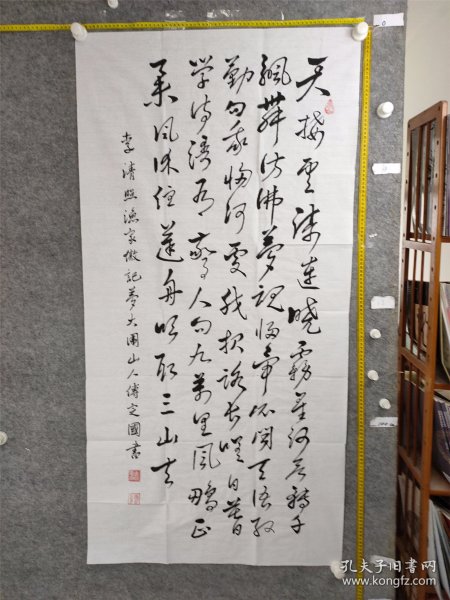 天接云涛连晓雾星河欲转千
帆舞仿佛梦魂归帝所闻天语殷
勤问我归何处我报路长嗟日暮
学诗谩有惊人句九万里风鹏正
举风休住蓬舟吹取三山去
李清照漁家傲記夢大围山人傅定國書
孔夫子旧书网
www.kongfz.com